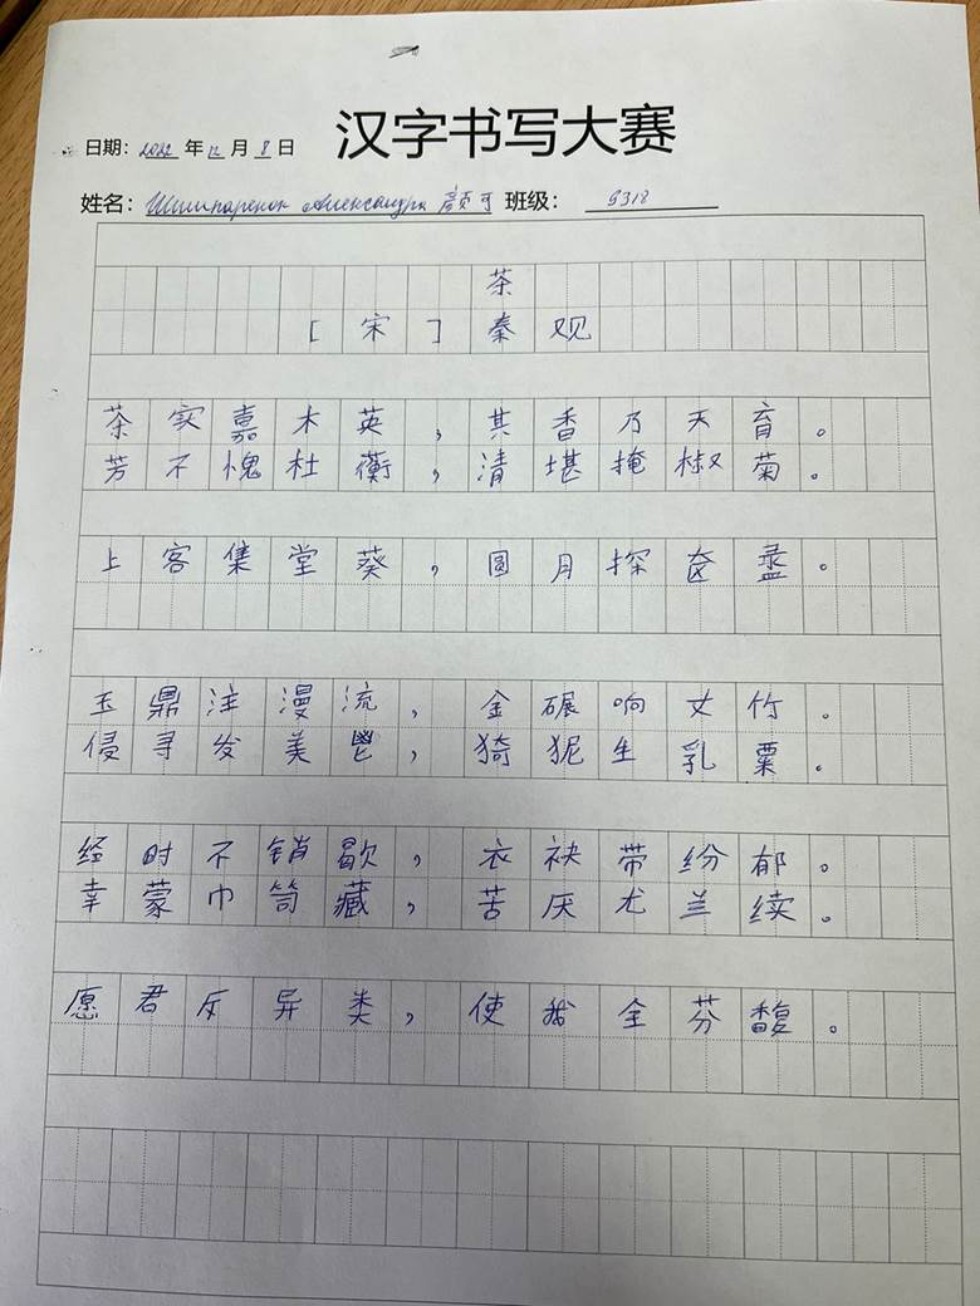 汉字书写大赛
日期: 2022 年 12 月 8 日
姓名: Шишпаренок Александра 颜可 班级: 9318
茶
[宋] 秦观
茶实嘉木英，其香乃天育。
芳不愧杜蘅，清堪掩椒菊。
上客集堂葵，圆月探奁盝。
玉鼎注漫流，金碾响丈竹。
侵寻发美鬯，猗狔生乳粟。
经时不销歇，衣袂带纷郁。
幸蒙巾笥藏，苦厌尤兰续。
愿君反异类，使我全芬馥。